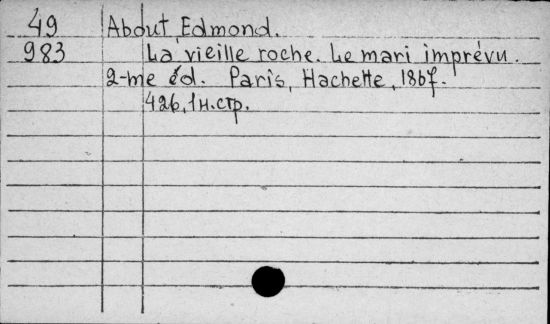 49 About, Edmond.
983 La vieille roche. Le mari imprévu.
2-me éd. Paris, Hachette, 1867.
426, 1 н.стр.